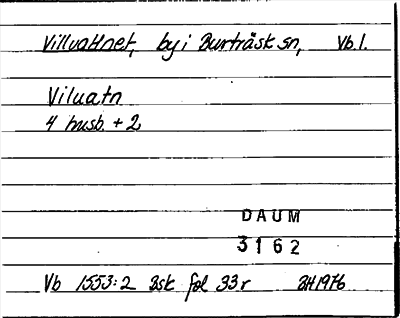 Villvattnet, by i Burträsk sn, Vb.l.
Viluatn
4 husb. + 2
DAUM
3162
Vb 1553:2 Bsk fol 33r BH1976